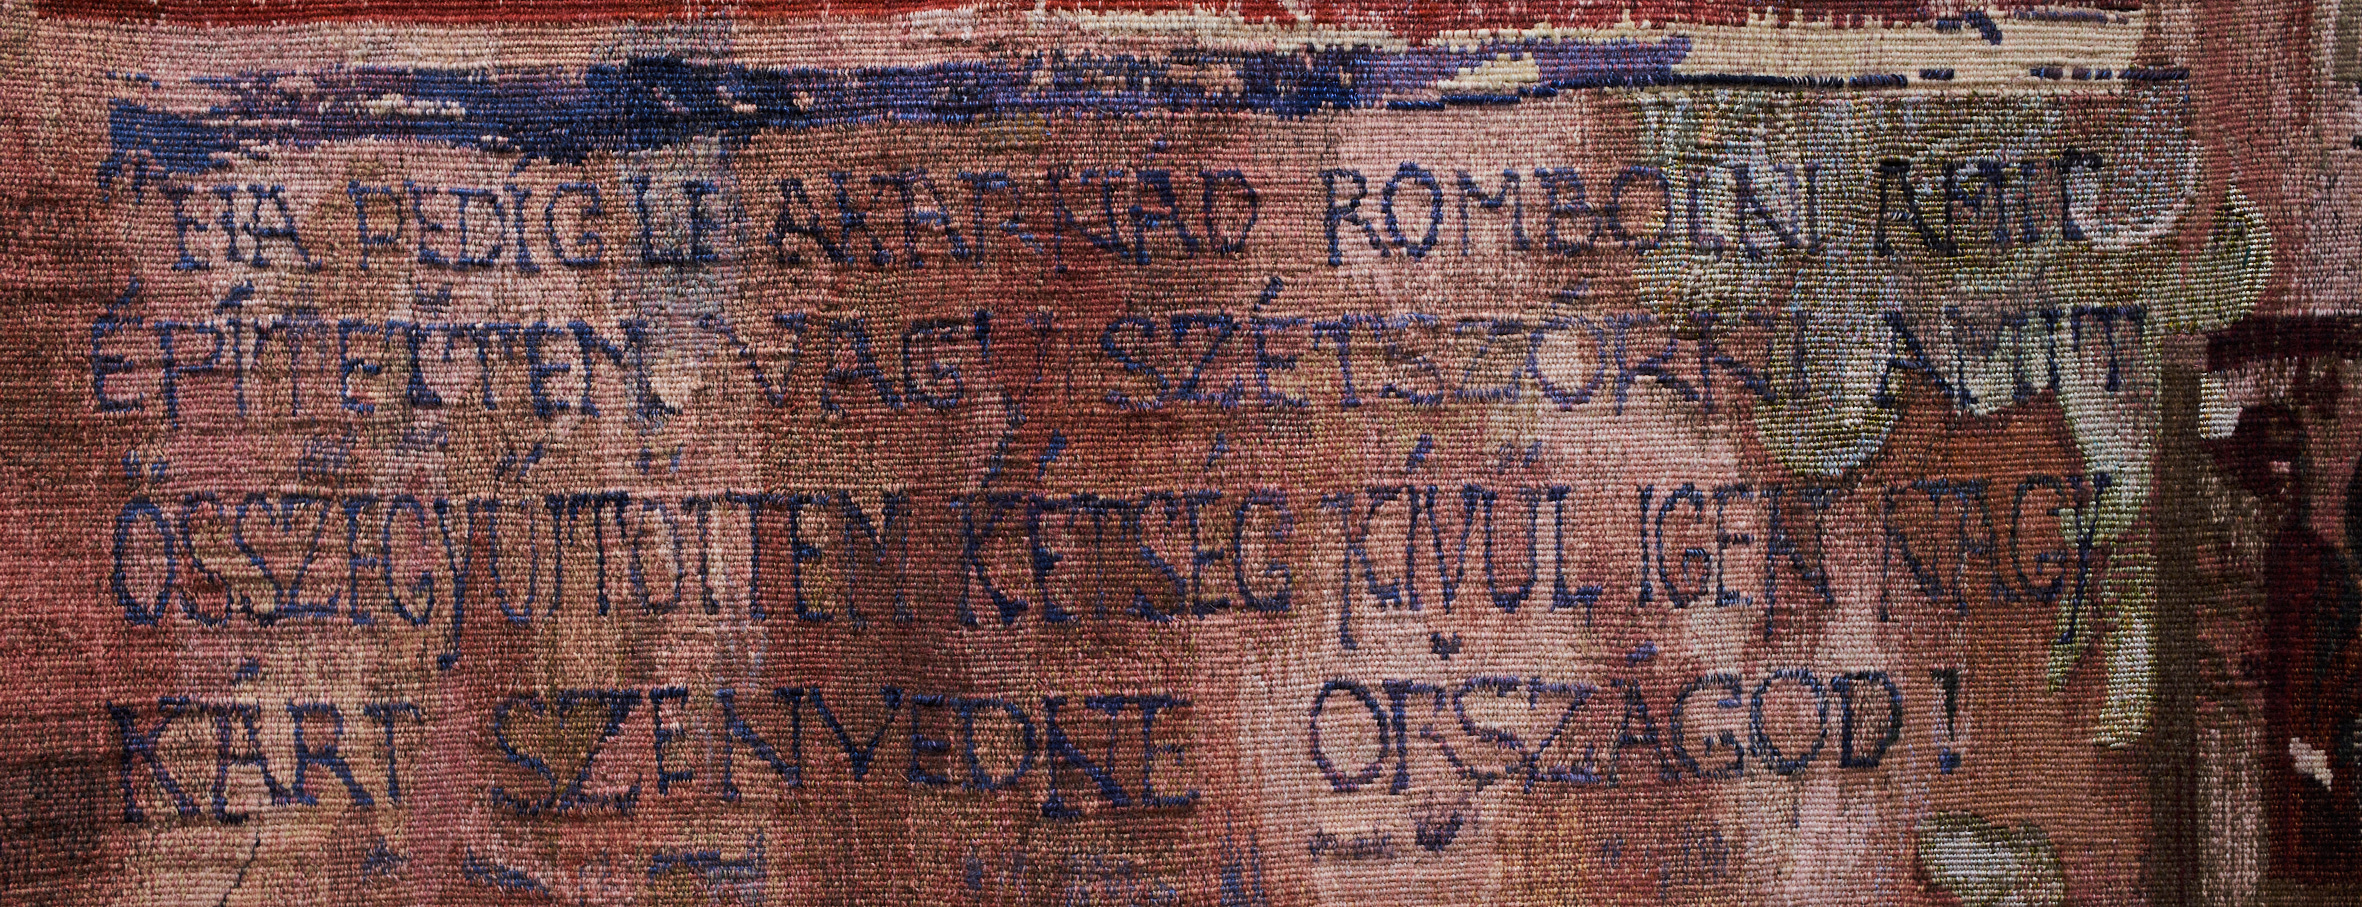 HA PEDIG LE AKARNÁD ROMBOLNI AMIT
ÉPÍTETTEM VAGY SZÉTSZÓRNI AMIT
ÖSSZEGYŰJTÖTTEM KÉTSÉG KÍVÜL IGEN NAGY
KÁRT SZENVEDNE ORSZÁGOD!